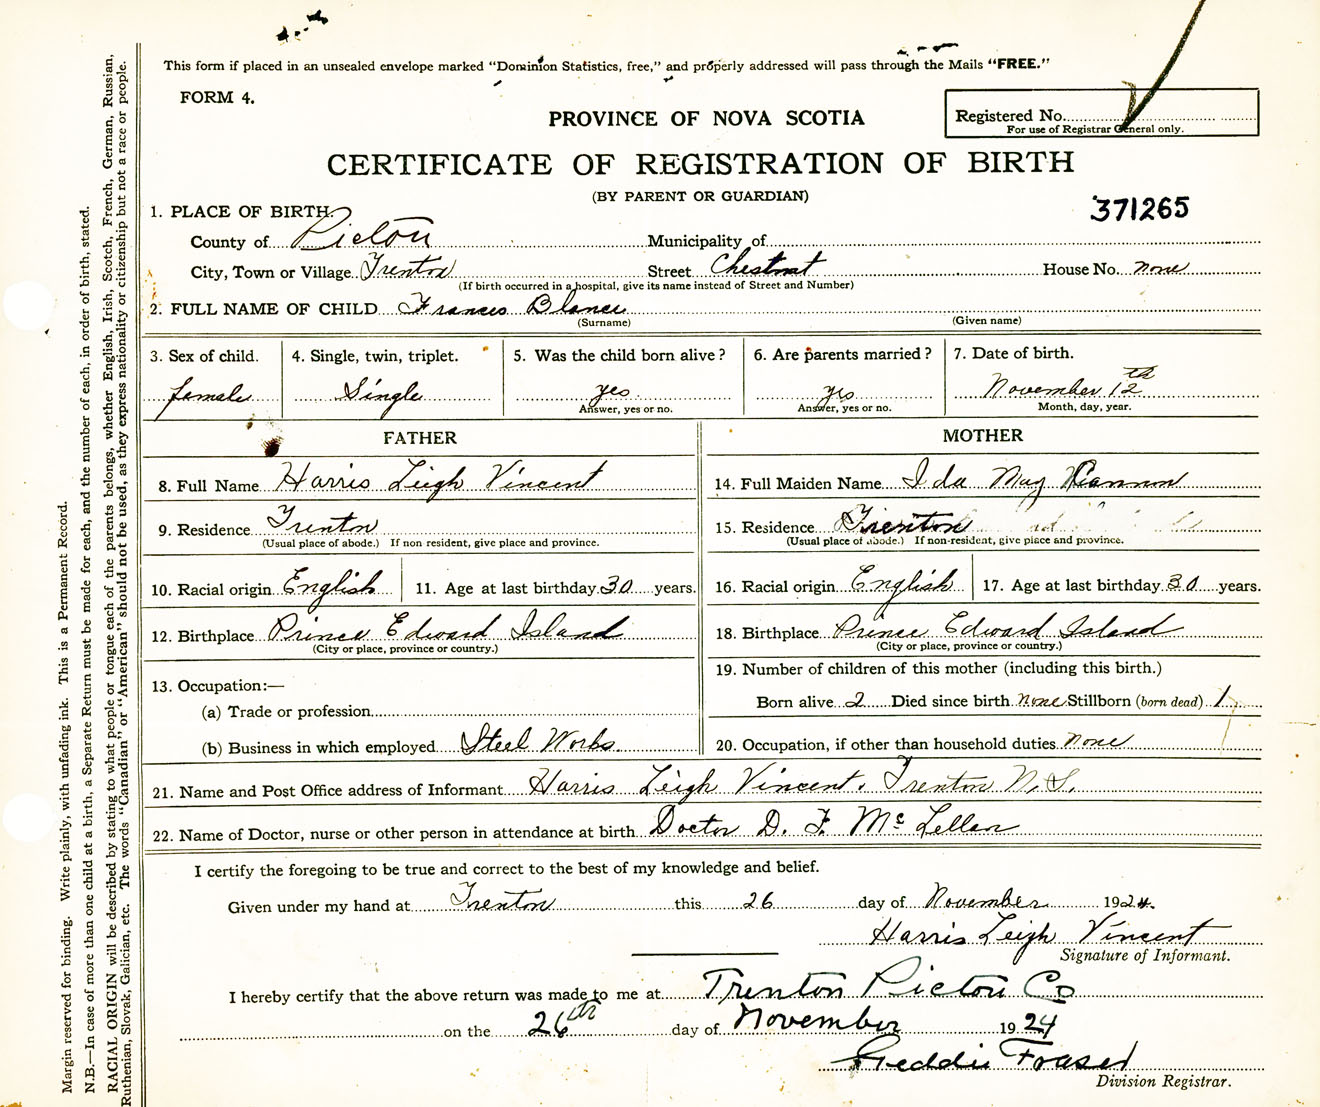 This form if placed in an unsealed envelope marked "Dominion Statistics, free," and properly addressed will pass through the Mails "FREE."
FORM 4.
PROVINCE OF NOVA SCOTIA
Registered No.
For use of Registrar General only.
CERTIFICATE OF REGISTRATION OF BIRTH
(BY PARENT OR GUARDIAN)
371265
1. PLACE OF BIRTH
County of Pictou Municipality of
City, Town or Village Trenton Street Chestnut House No. none
(If birth occurred in a hospital, give its name instead of Street and Number)
2. FULL NAME OF CHILD Frances Blance
(Surname) (Given name)
3. Sex of child. 4. Single, twin, triplet. 5. Was the child born alive? 6. Are parents married? 7. Date of birth.
female Single yes yes November 12th
Answer, yes or no. Answer, yes or no. Month, day, year.
FATHER MOTHER
8. Full Name Harris Leigh Vincent 14. Full Maiden Name Ida May
9. Residence Trenton 15. Residence Trenton
(Usual place of abode.) If non-resident, give place and province. (Usual place of abode.) If non-resident, give place and province.
10. Racial origin English 11. Age at last birthday 30 years. 16. Racial origin English 17. Age at last birthday 30 years.
12. Birthplace Prince Edward Island 18. Birthplace Prince Edward Island
(City or place, province or country.) (City or place, province or country.)
13. Occupation:— 19. Number of children of this mother (including this birth.)
(a) Trade or profession Born alive 2 Died since birth none Stillborn (born dead) 1
(b) Business in which employed Steel Works 20. Occupation, if other than household duties none
21. Name and Post Office address of Informant Harris Leigh Vincent. Trenton N.S.
22. Name of Doctor, nurse or other person in attendance at birth Doctor D. F. McLellan
I certify the foregoing to be true and correct to the best of my knowledge and belief.
Given under my hand at Trenton this 26 day of November 1924.
Harris Leigh Vincent
Signature of Informant.
I hereby certify that the above return was made to me at Trenton Pictou Co
on the 26th day of November 1924
Freddie Fraser
Division Registrar.
Margin reserved for binding. Write plainly, with unfading ink. This is a Permanent Record.
N.B.—In case of more than one child at a birth, a Separate Return must be made for each, and the number of each, in order of birth, stated.
RACIAL ORIGIN will be described by stating to what people or tongue each of the parents belongs, whether English, Irish, Scotch, French, German, Russian,
Ruthenian, Slovak, Galician, etc. The words "Canadian" or "American" should not be used, as they express nationality or citizenship but not a race or people.